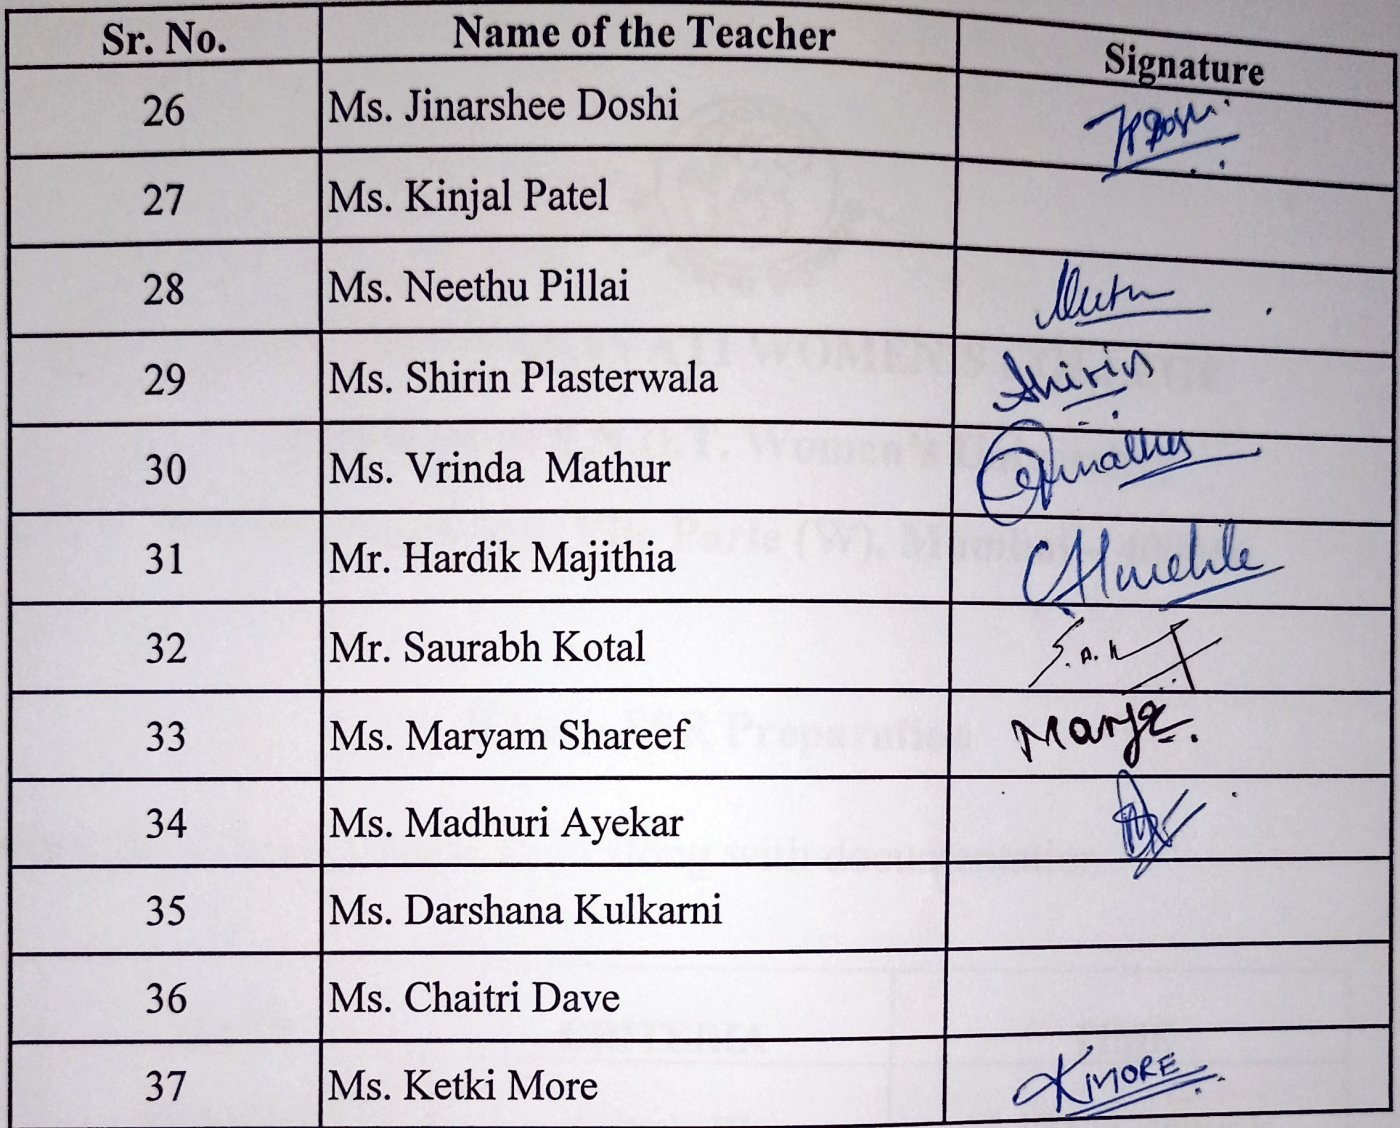 Sr. No. Name of the Teacher Signature
26 Ms. Jinarshee Doshi
27 Ms. Kinjal Patel
28 Ms. Neethu Pillai
29 Ms. Shirin Plasterwala Shirin
30 Ms. Vrinda Mathur
31 Mr. Hardik Majithia
32 Mr. Saurabh Kotal
33 Ms. Maryam Shareef
34 Ms. Madhuri Ayekar
35 Ms. Darshana Kulkarni
36 Ms. Chaitri Dave
37 Ms. Ketki More KMORE